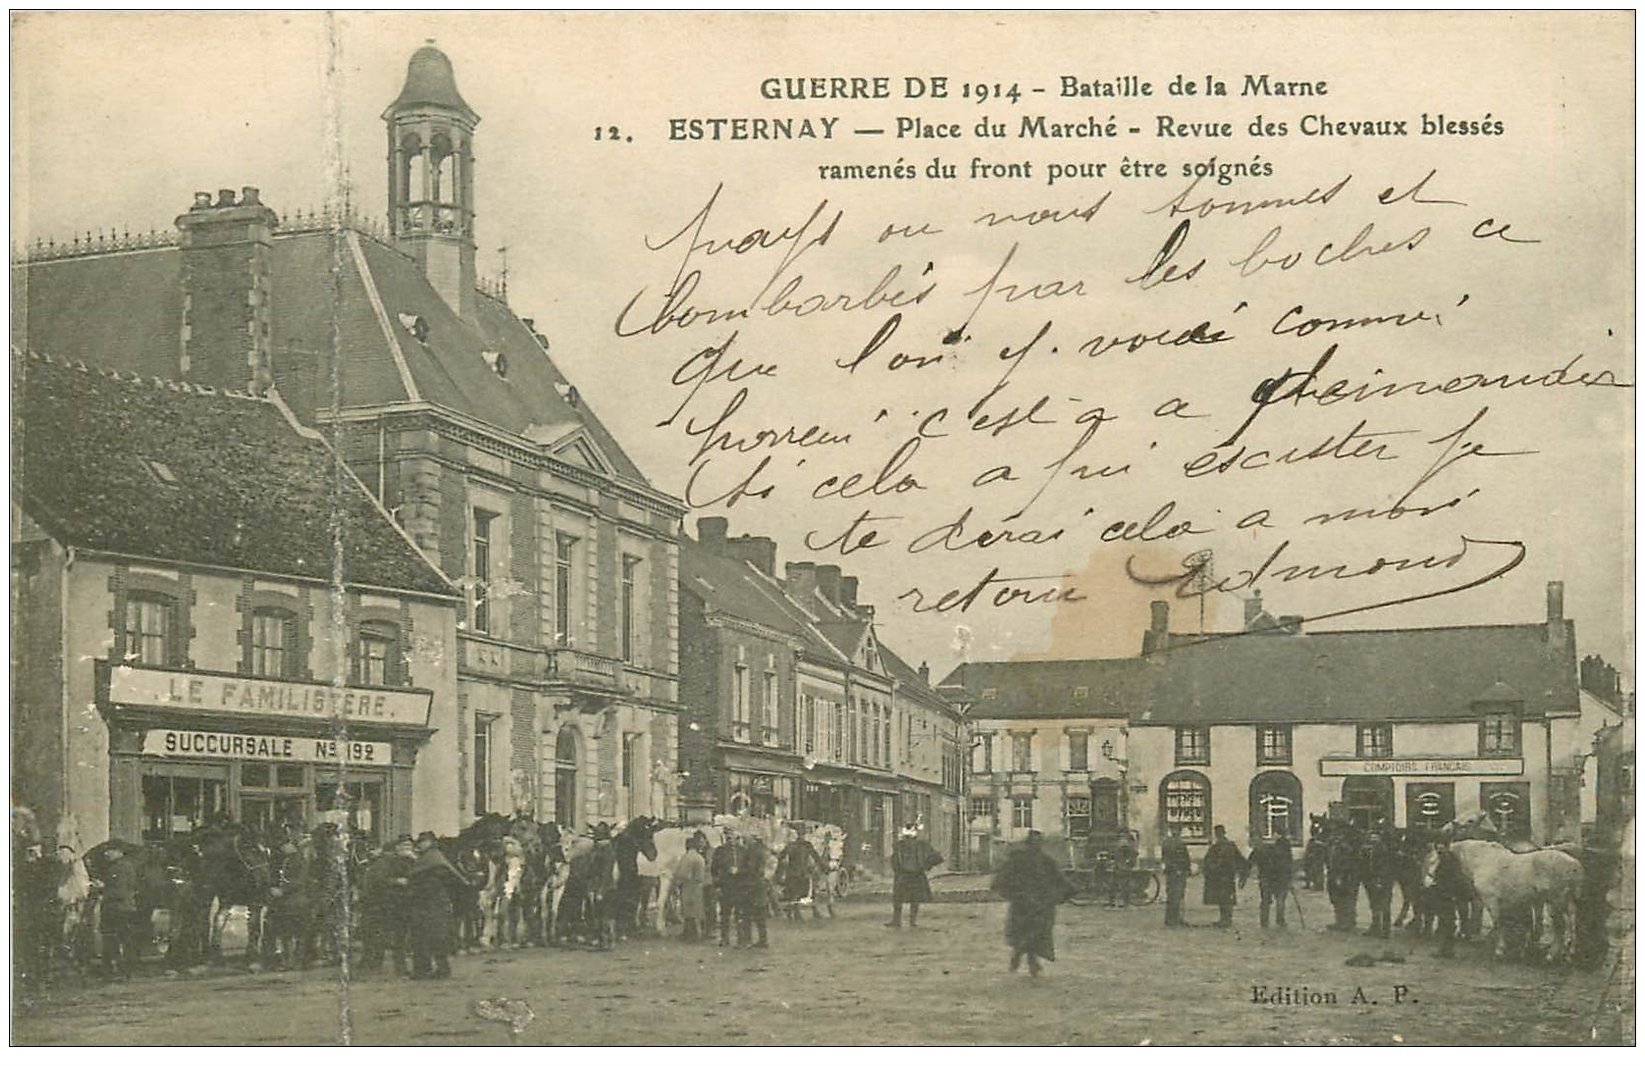 GUERRE DE 1914 - Bataille de la Marne
12. ESTERNAY — Place du Marché - Revue des Chevaux blessés
ramenés du front pour être soignés
pays ou nous sommes et
bombarbés par les boches ce
que l'on y. voi comme
horreur c'est a a
si cela a pui escister je
te dirai cela a mon
retour Edmond
LE FAMILISTERE.
SUCCURSALE No 192
COMPTOIRS FRANCAIS
Edition A. P.